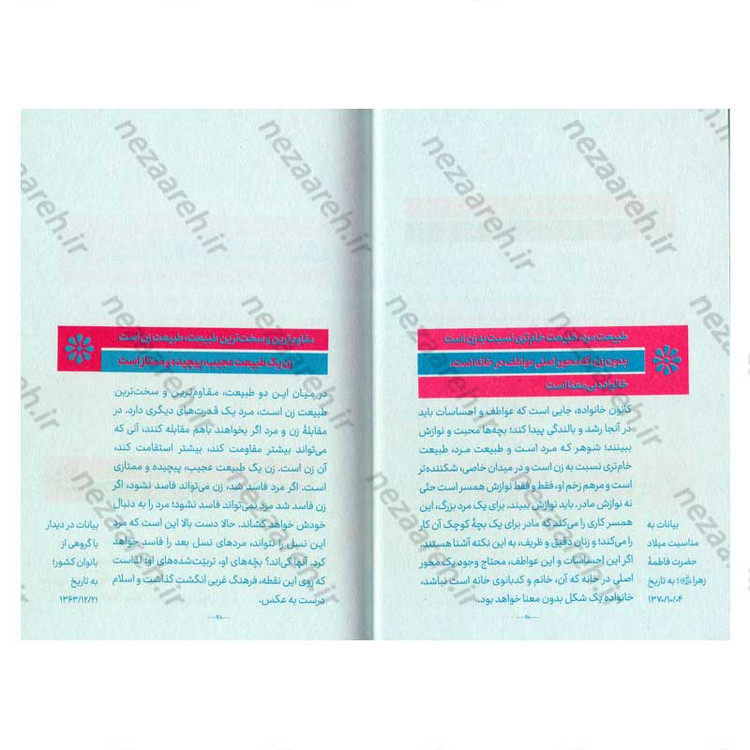 طبیعت مرد، طبیعت خام‌تری نسبت به زن است
بدون زن، که محور اصلی عواطف در خانه است،
خانواده بی‌معنا است
کانون خانواده، جایی است که عواطف و احساسات باید
در آنجا رشد و بالندگی پیدا کند؛ بچه‌ها محبت و نوازش
ببینند؛ شوهر که مرد است و طبیعت مرد، طبیعت
خام‌تری نسبت به زن است و در میدان خاصی، شکننده‌تر
است و مرهم زخم او، فقط و فقط نوازش همسر است حتّی
نه نوازش مادر. باید نوازش ببیند. برای یک مرد بزرگ، این
همسر کاری را می‌کند که مادر برای یک بچهٔ کوچک آن کار
را می‌کند؛ و زنان دقیق و ظریف، به این نکته آشنا هستند.
اگر این احساسات و این عواطف، محتاج وجود یک محور
اصلی در خانه که آن، خانم و کدبانوی خانه است نباشد،
خانواده یک شکل بدون معنا خواهد بود.
بیانات به
مناسبت میلاد
حضرت فاطمهٔ
زهرا؛ به تاریخ
۱۳۷۰/۱۰/۰۴
مقاوم‌ترین و سخت‌ترین طبیعت، طبیعت زن است
زن یک طبیعت عجیب، پیچیده و ممتاز است
در میان این دو طبیعت، مقاوم‌ترین و سخت‌ترین
طبیعت زن است، مرد یک قدرت‌های دیگری دارد. در
مقابلهٔ زن و مرد اگر بخواهند باهم مقابله کنند، آنی که
می‌تواند بیشتر مقاومت کند، بیشتر استقامت کند،
آن زن است. زن یک طبیعت عجیب، پیچیده و ممتازی
است. اگر مرد فاسد شد، زن می‌تواند فاسد نشود؛ اگر
زن فاسد شد مرد نمی‌تواند فاسد نشود؛ مرد را به دنبال
خودش خواهد کشاند. حالا دست بالا این است که مرد
این نسل را نتواند، مردهای نسل بعد را فاسد خواهد
کرد. آنها کی‌اند؟ بچه‌های او، تربیّت‌شده‌های او! لذاست
که روی این نقطه، فرهنگ غربی انگشت گذاشت و اسلام
درست به عکس.
بیانات در دیدار
با گروهی از
بانوان کشور؛
به تاریخ
۱۳۶۳/۱۲/۲۱
nezaareh.ir
nezaareh.ir
nezaareh.ir
nezaareh.ir
nezaareh.ir
nezaareh.ir